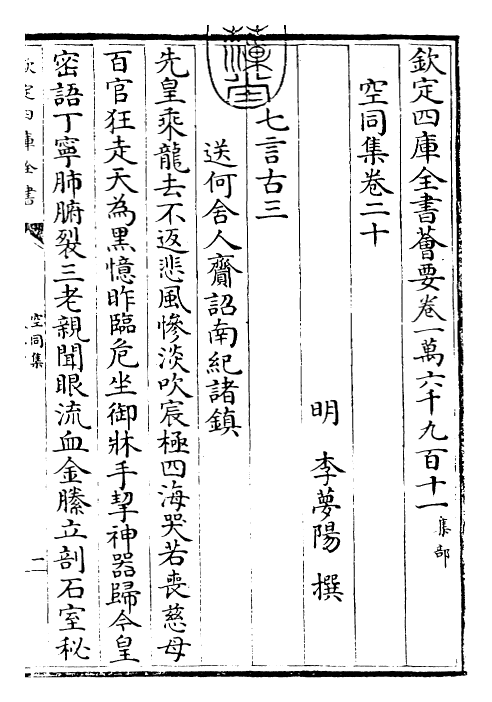 欽定四庫全書薈要卷一萬六千九百十一集部
空同集卷二十
明 李夢陽 撰
七言古三
送何舍人齎詔南紀諸鎮
先皇乘龍去不返悲風慘淡吹宸極四海哭若喪慈母
百官狂走天為黑憶昨臨危坐御牀手挈神器歸今皇
密語丁寧肺腑裂三老親聞眼流血金縢立剖石室秘
欽定四庫全書
空同集
一